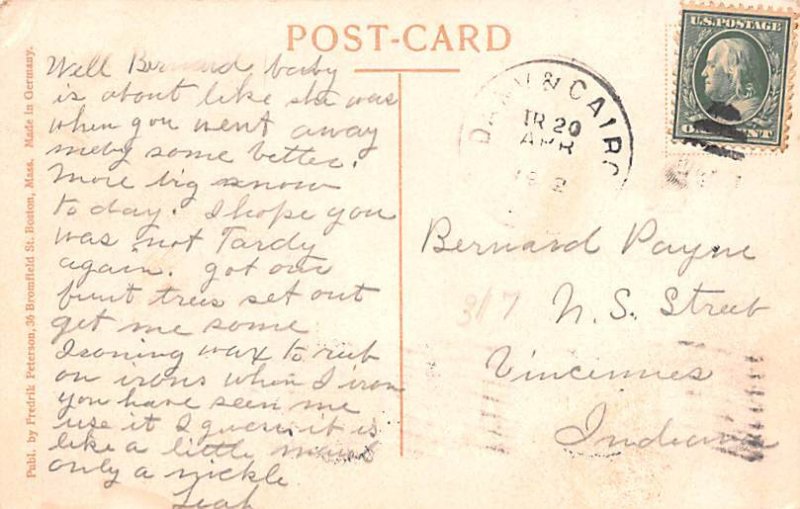 POST-CARD
Well Bernard baby
is about like she was
when you went away
meby some better.
More big snow
to day. I hope you
was not Tardy
again. got our
fruit trees set out
get me some
Ironing wax to rub
on irons when I iron
you have seen me
use it I guess it is
like a little
only a nickle
Leah
Publ. by Fredrik Peterson, 36 Bromfield St. Boston, Mass. Made in Germany.
& CAIRO
TR 20
APR
U.S. POSTAGE
ONE CENT
Bernard Payne
317 N. S. Street
Vincennes
Indiana